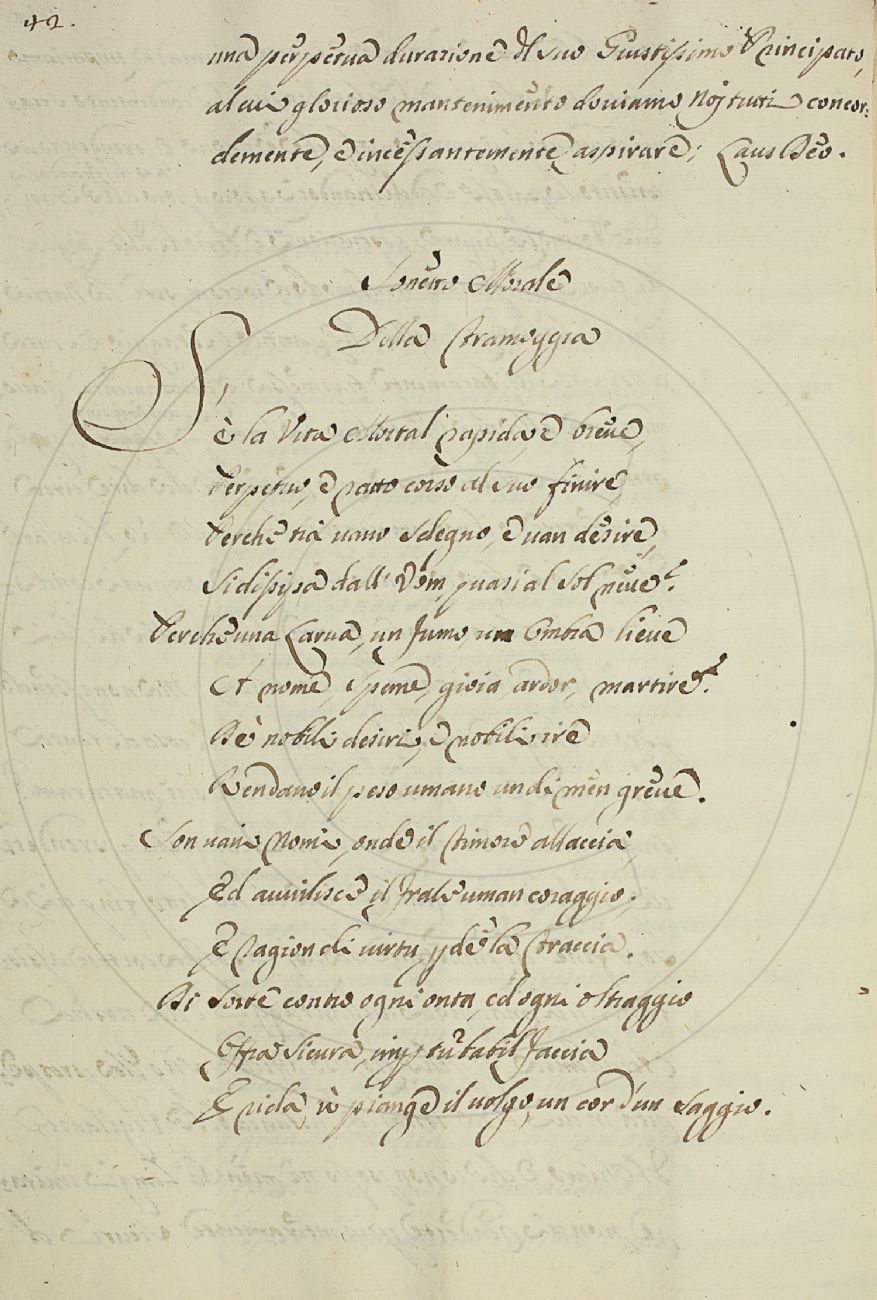 42.
una perpetua durazione del suo Giustissimo Principato,
al cui glorioso mantenimento doviamo Noj tutti concor:
demente, è incessantemente aspirare; Laus Deo.
Sonetto Morale
Della Strameggia
S,
è la Vita Mortal rapida, è breve,
Perpetuo, è ratto corso al suo finire,
Perche tra vano sdegno, è van desire,
Si dissipa dall' Vom, quasi al Sol neve?
Perche una Larva, un fumo, un Ombra lieve
Ci nome, speme, gioia, ardor, martire?
Ne nobili desiri, è nobili ire
Rendano il peso umano un di mèn greve.
Son vani Nomi, onde il timore allaccia,
Ed avvilisce il frale uman coraggio,
E ragion di virtu, la straccia.
Di sorte contro ogni onta, ed ogni oltraggio
Offra sicura, imperturbabil faccia
E rida, s'è piange il volgo, un cor d'un Saggio.